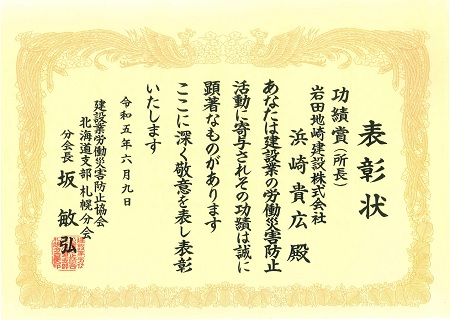 表彰状
功績賞(所長)
岩田地崎建設株式会社
浜崎貴広殿
あなたは建設業の労働災害防止
活動に寄与されその功績は誠に
顕著なものがあります
ここに深く敬意を表し表彰
いたします
令和五年六月九日
建設業労働災害防止協会
北海道支部札幌分会
分会長 坂敏弘